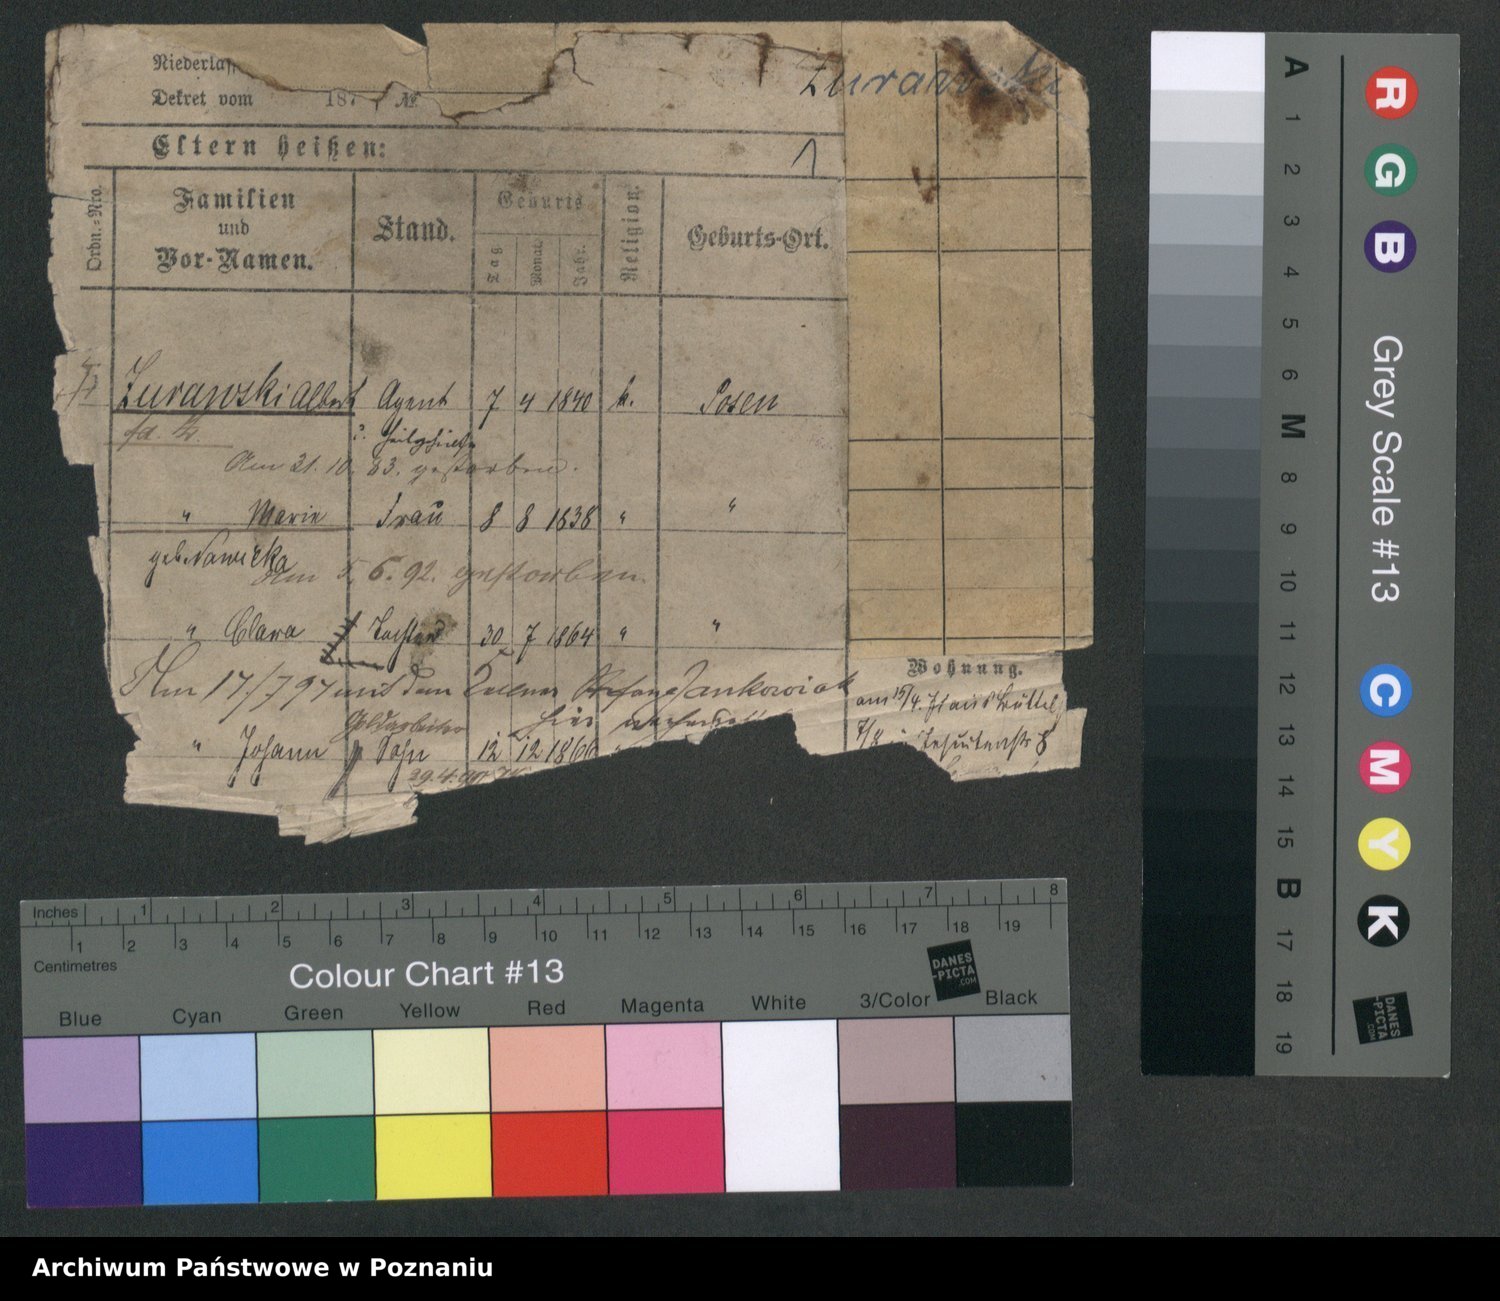 Niederlass
Dekret vom 187 , №
Zurawski
Eltern heißen:
1
Ordn.-Nro.
Familien
und
Vor-Namen.
Stand.
Geburts
Tag
Monat
Jahr.
Religion.
Geburts-Ort.
Zurawski Albert Agent 7 4 1840 k. Posen
Am 21. 10. 83. gestorben.
" Marie Frau 8 8 1838 " "
geb. Nawicka
Am 5. 6. 92. gestorben.
" Clara Tochter 30 7 1864 " "
Am 17/7 97 mit dem Kellner Stefan Jankowiak
hier
" Johann Sohn 12 12 1866 "
Wohnung.
am 15/4.
7/8 Jesuitenstr 8
Inches 1 2 3 4 5 6 7 8
1 2 3 4 5 6 7 8 9 10 11 12 13 14 15 16 17 18 19
Centimetres
Colour Chart #13
DANES
-PICTA
.COM
Blue Cyan Green Yellow Red Magenta White 3/Color Black
A 1 2 3 4 5 6 M 8 9 10 11 12 13 14 15 B 17 18 19
R G B Grey Scale #13 C M Y K
DANES
-PICTA
.COM
Archiwum Państwowe w Poznaniu